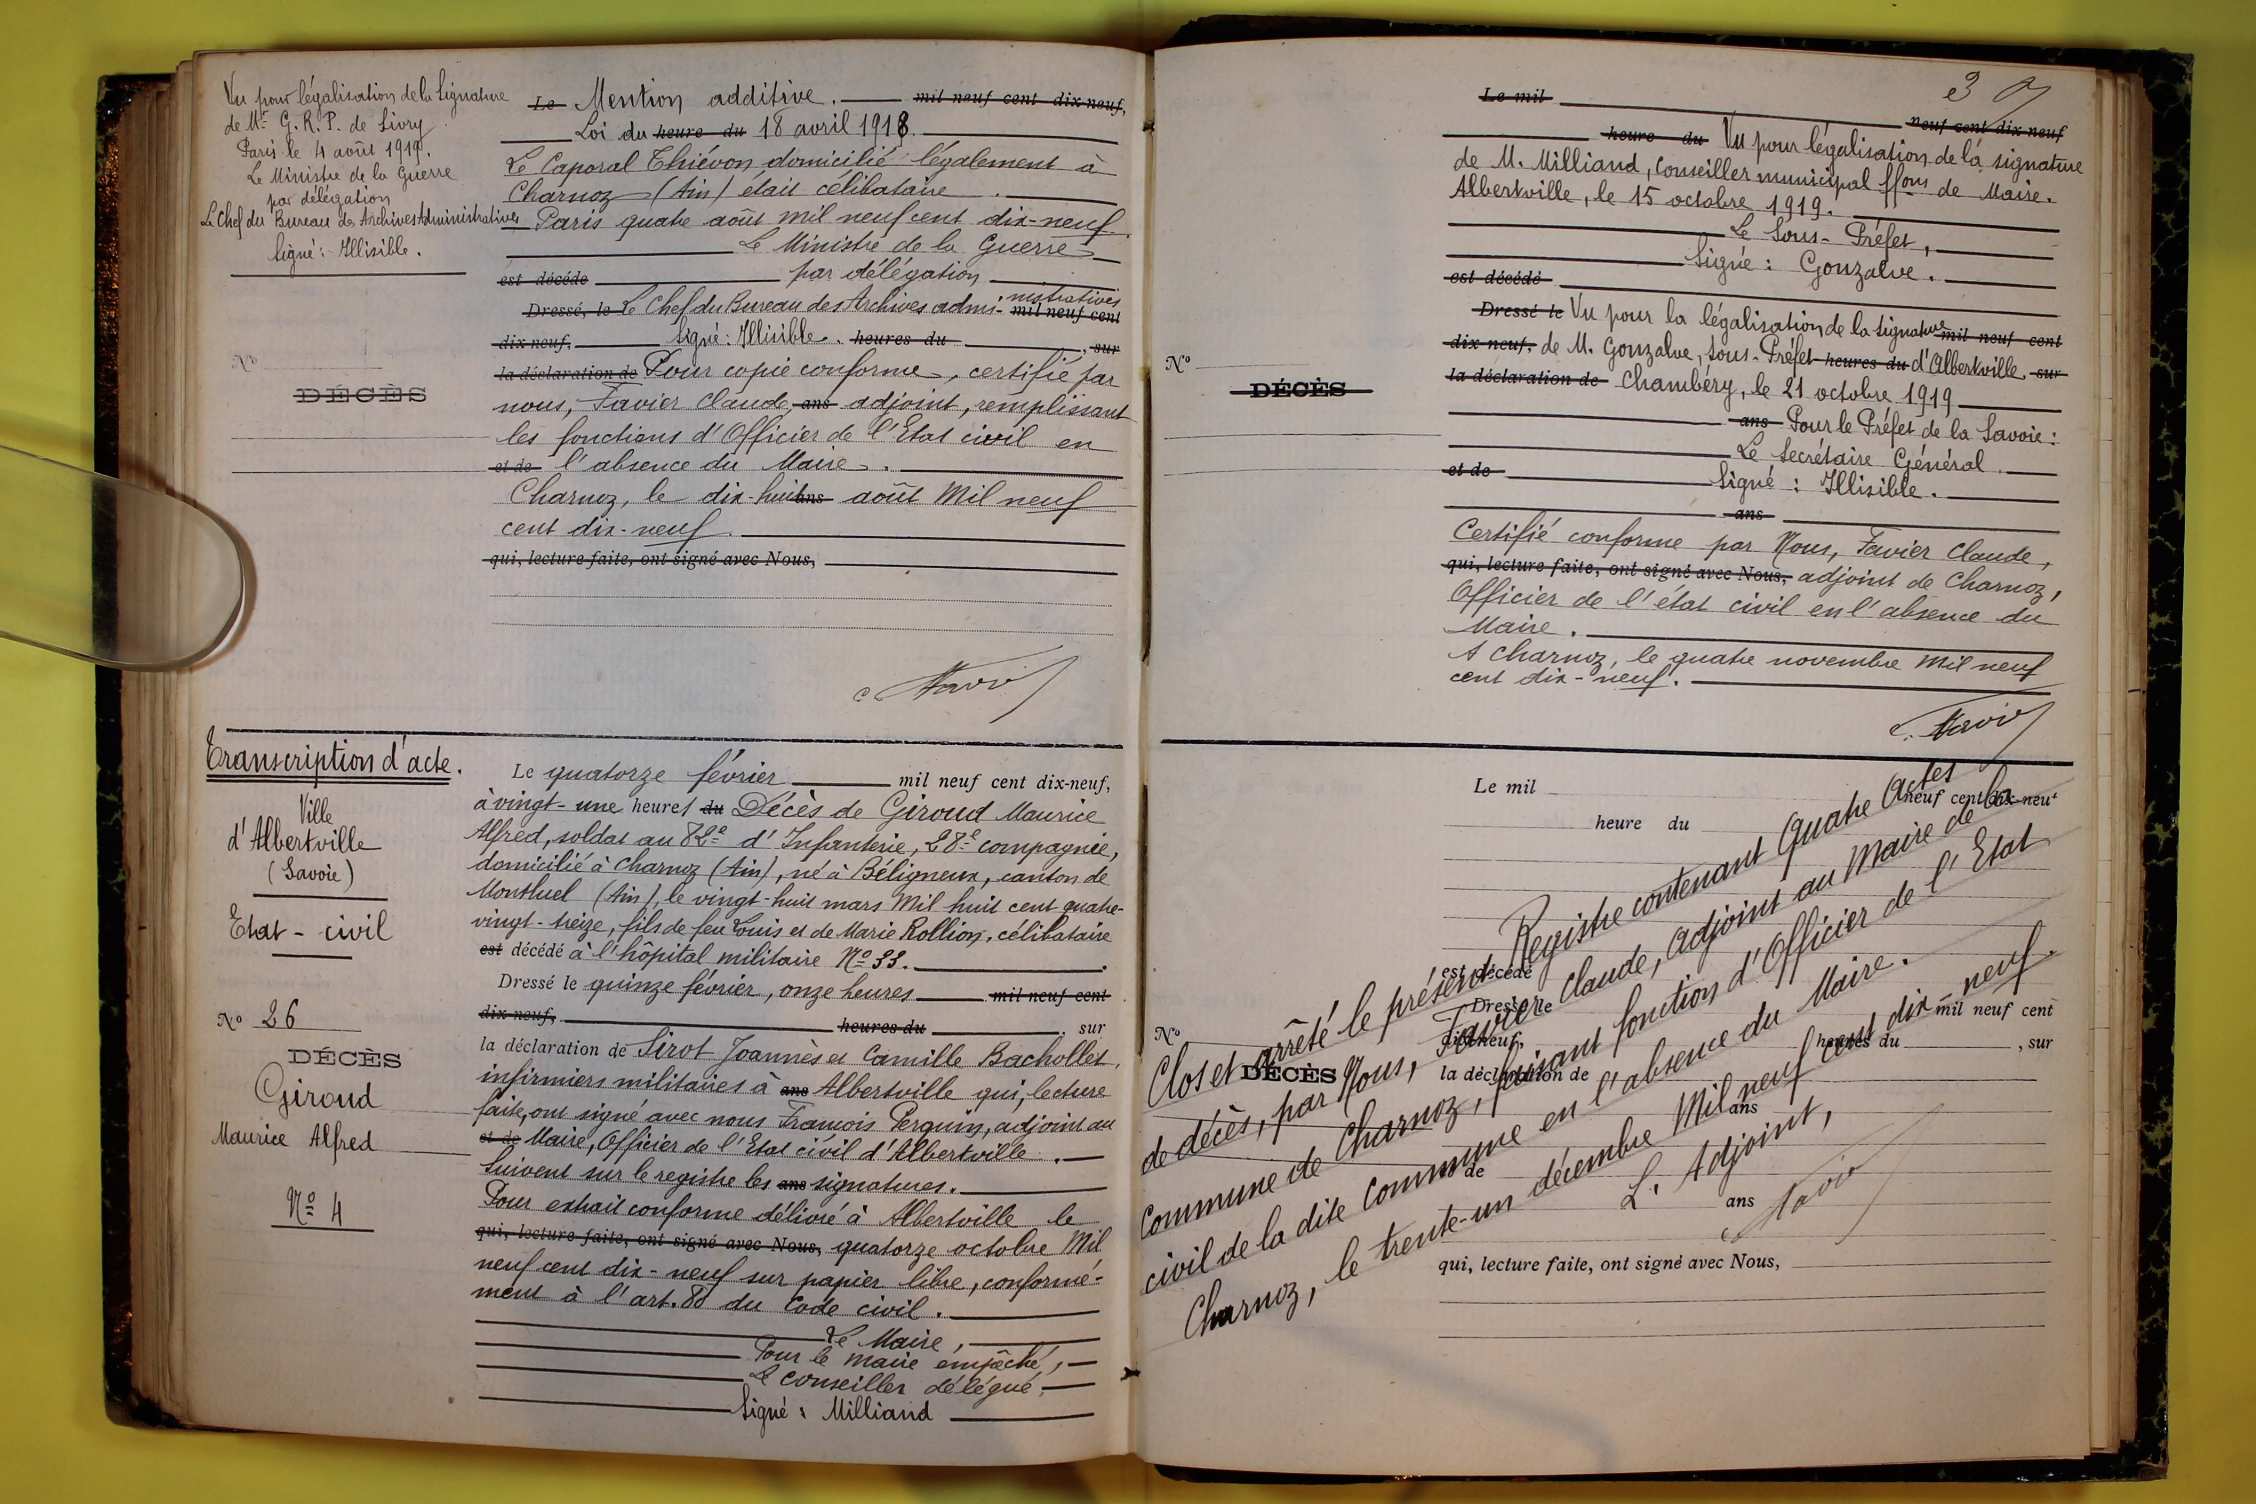 Vu pour légalisation de la Signature
de Mr G. R. P. de Livry
Paris le 4 août 1919.
Le Ministre de la Guerre
par délégation
Le Chef du Bureau des Archives Administratives
Signé : Illisible.
Le Mention additive. mil neuf cent dix-neuf,
Loi du heure du 18 avril 1918.
Le Caporal Thiévon domicilié légalement à
Charnoz (Ain) était célibataire.
Paris quatre août mil neuf cent dix-neuf.
Le Ministre de la Guerre
est décédé par délégation
Dressé, le Le Chef du Bureau des Archives administratives mil neuf cent
dix-neuf, Signé : Illisible. heures du , sur
la déclaration de Pour copie conforme, certifié par
nous, Favier Claude, ans adjoint, remplissant
les fonctions d'Officier de l'Etat civil en
et de l'absence du Maire.
Charnoz, le dix-huit ans août Mil neuf
cent dix-neuf.
qui, lecture faite, ont signé avec Nous,
No
DÉCÈS
C. Favier
Transcription d'acte.
Ville
d'Albertville
(Savoie)
Etat - civil
No 26
DÉCÈS
Giroud
Maurice Alfred
No 4
Le quatorze février mil neuf cent dix-neuf,
à vingt-une heures du Décès de Giroud Maurice
Alfred, soldat au 82e d'Infanterie, 28e compagnie,
domicilié à Charnoz (Ain), né à Béligneux, canton de
Montluel (Ain), le vingt-huit mars Mil huit cent quatre-
vingt-treize, fils de feu Louis et de Marie Rollion, célibataire
est décédé à l'hôpital militaire No 33.
Dressé le quinze février, onze heures mil neuf cent
dix-neuf, heures du , sur
la déclaration de Sirot Joannès et Camille Bachollet,
infirmiers militaires à ans Albertville qui, lecture
faite, ont signé avec nous François Perguin, adjoint au
et de Maire, Officier de l'Etat civil d'Albertville.
Suivent sur le registre les ans signatures.
Pour extrait conforme délivré à Albertville le
qui, lecture faite, ont signé avec Nous, quatorze octobre Mil
neuf cent dix-neuf sur papier libre, conformé-
ment à l'art. 80 du Code civil.
Le Maire,
Pour le maire empêché,
Le Conseiller délégué,
Signé : Milliand
3
Le mil
neuf cent dix-neuf
heure du Vu pour légalisation de la signature
de M. Milliand, Conseiller municipal ffons de Maire.
Albertville, le 15 octobre 1919.
Le Sous-Préfet,
Signé : Gonzalve.
est décédé
Dressé le Vu pour la légalisation de la signature mil neuf cent
dix-neuf, de M. Gonzalve, Sous-Préfet heures du d'Albertville, sur
la déclaration de Chambéry, le 21 octobre 1919
ans Pour le Préfet de la Savoie :
Le Secrétaire Général.
et de Signé : Illisible.
ans
Certifié conforme par Nous, Favier Claude,
qui, lecture faite, ont signé avec Nous, adjoint de Charnoz,
Officier de l'état civil en l'absence du
Maire.
A Charnoz, le quatre novembre Mil neuf
cent dix-neuf.
No
DÉCÈS
C. Favier
Le mil neuf cent dix-neuf
heure du
est décédé
Dressé le mil neuf cent
dix-neuf, heures du , sur
No
DÉCÈS
la déclaration de
ans
de
ans
qui, lecture faite, ont signé avec Nous,
Clos et arrêté le présent Registre contenant Quatre Actes
de décès, par Nous, Favier Claude, adjoint au Maire de la
Commune de Charnoz, faisant fonction d'Officier de l'Etat
civil de la dite Commune en l'absence du Maire.
Charnoz, le trente-un décembre Mil neuf cent dix-neuf.
L'Adjoint,
C Favier